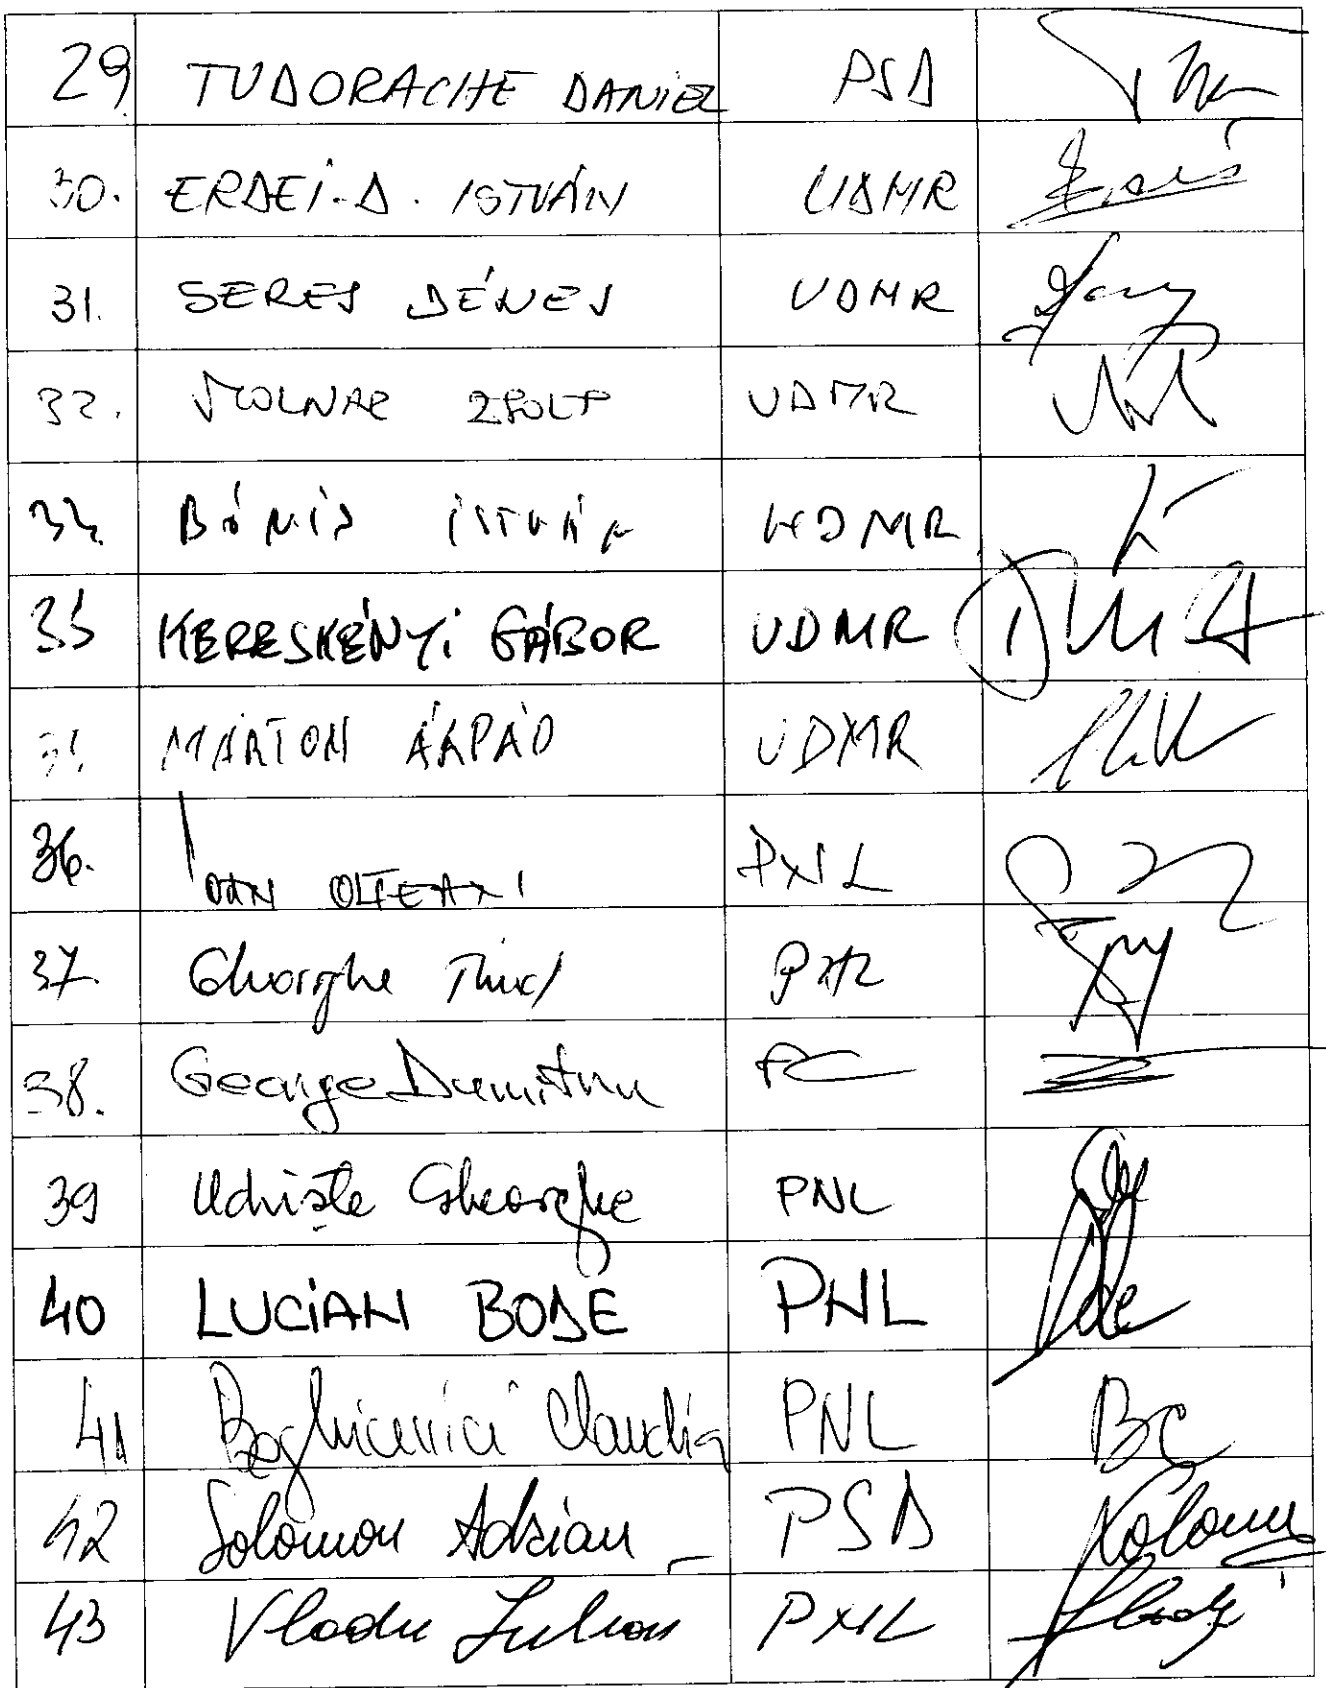 29 TUDORACHE DANIEL PSD
30. ERDEI.D. ISTVÁN UDMR
31. SERES DÉNES UDMR
32. MOLNAR ZSOLT UDMR
BÓNIS ISTVÁN UDMR
KERESKÉNYI GÁBOR UDMR
MÁRTON ÁRPÁD UDMR
36. IOAN OLTEAN PNL
37. Gheorghe PNL
38. George Dumitru
39 Udriște Gheorghe PNL
40 LUCIAN BODE PNL
41 Boghicevici Claudia PNL BC
42 Solomon Adrian PSD
43 Vladu Iulian PNL